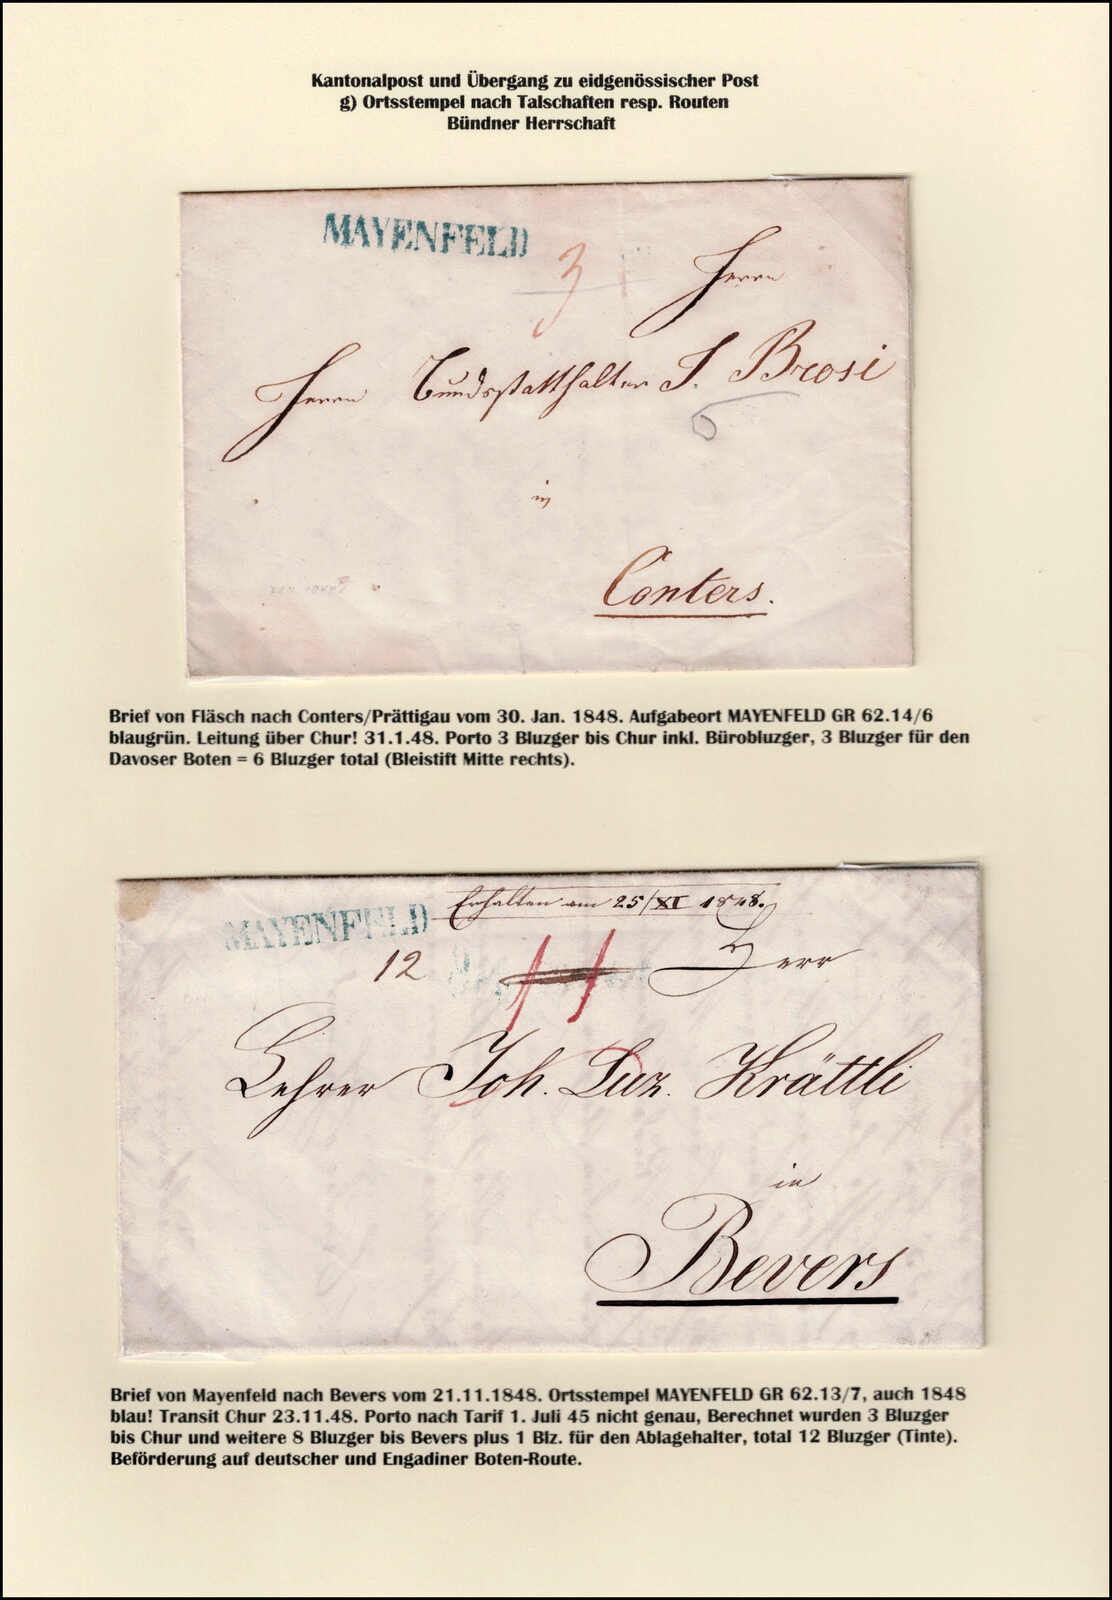 Kantonalpost und Übergang zu eidgenössischer Post
g) Ortsstempel nach Talschaften resp. Routen
Bündner Herrschaft
MAYENFELD
3
Herrn
Herrn Bundsstatthalter J. Brosi
6
in
Conters.
Brief von Fläsch nach Conters/Prättigau vom 30. Jan. 1848. Aufgabeort MAYENFELD GR 62.14/6
blaugrün. Leitung über Chur! 31.1.48. Porto 3 Bluzger bis Chur inkl. Bürobluzger, 3 Bluzger für den
Davoser Boten = 6 Bluzger total (Bleistift Mitte rechts).
Erhalten am 25/XI 1848.
MAYENFELD
12
Herr
Lehrer Joh. Luz. Krättli
in
Bevers
Brief von Mayenfeld nach Bevers vom 21.11.1848. Ortsstempel MAYENFELD GR 62.13/7, auch 1848
blau! Transit Chur 23.11.48. Porto nach Tarif 1. Juli 45 nicht genau, Berechnet wurden 3 Bluzger
bis Chur und weitere 8 Bluzger bis Bevers plus 1 Blz. für den Ablagehalter, total 12 Bluzger (Tinte).
Beförderung auf deutscher und Engadiner Boten-Route.